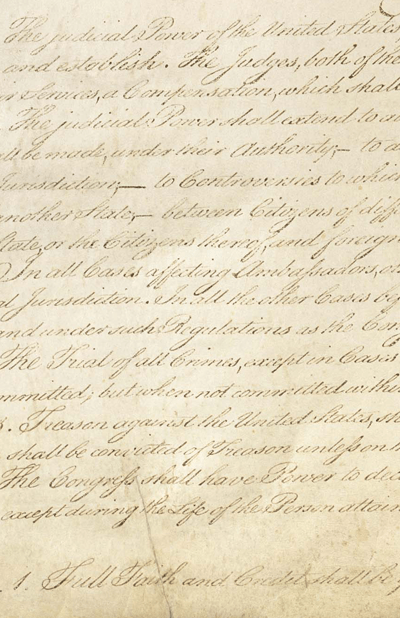 The judicial Power of the United States
and establish. The Judges, both of the
or Services, a Compensation, which shall
The judicial Power shall extend to
be made, under their Authority;— to
Jurisdiction;— to Controversies to which
another State,— between Citizens of
State, or the Citizens thereof, and foreign
In all Cases affecting Ambassadors,
Jurisdiction. In all the other Cases
and under such Regulations as the Con
The Trial of all Crimes, except in Cases
ommitted; but when not committed within
3. Treason against the United States, sh
shall be convicted of Treason unless on
The Congress shall have Power to dec
except during the Life of the Person attain
1. Full Faith and Credit shall be